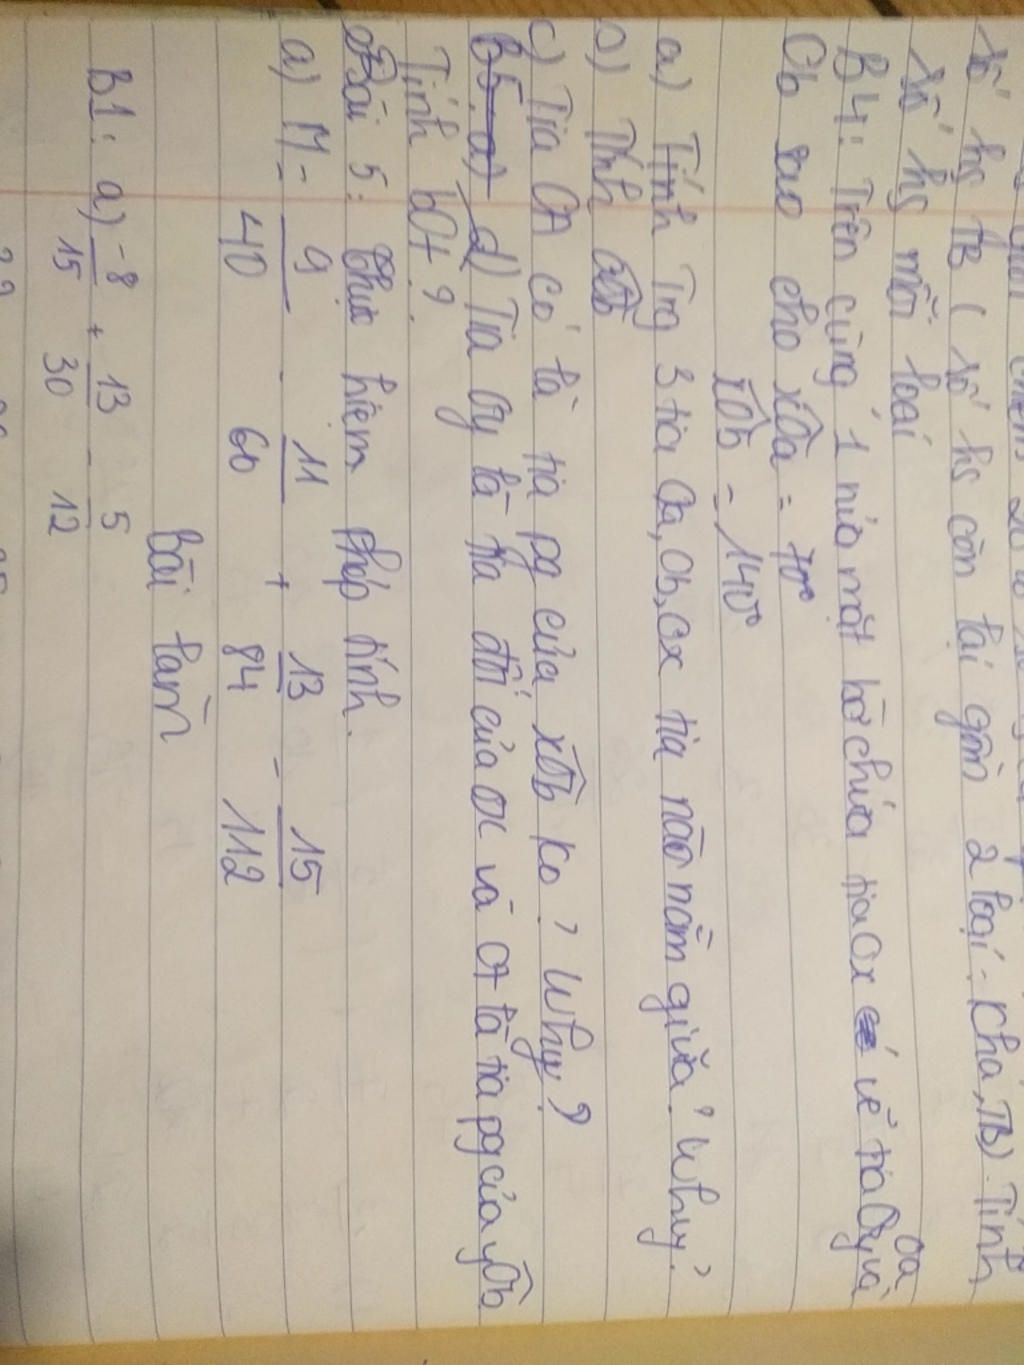 số hs TB ( số hs còn lại gồm 2 loại : khá, TB). Tính
số hs mỗi loại
B4: Trên cùng 1 nửa mặt bờ chứa tia Ox vẽ tia Oa và
Ob sao cho xOa = 70°
xOb = 140°
a) Tính Trg 3 tia Oa, Ob, Ox tia nào nằm giữa? Why?
b) Tính aOb
c) Tia OA có là tia pg của xOb ko? Why?
B5. a) d) Tia Oy là tia đối của Ox và Ot là tia pg của yOb
Tính bOt?
Bài 5: Thực hiện phép tính.
a) M = 9/40 - 11/60 + 13/84 - 15/112
Bài làm
B1: a) -8/15 + 13/30 - 5/12